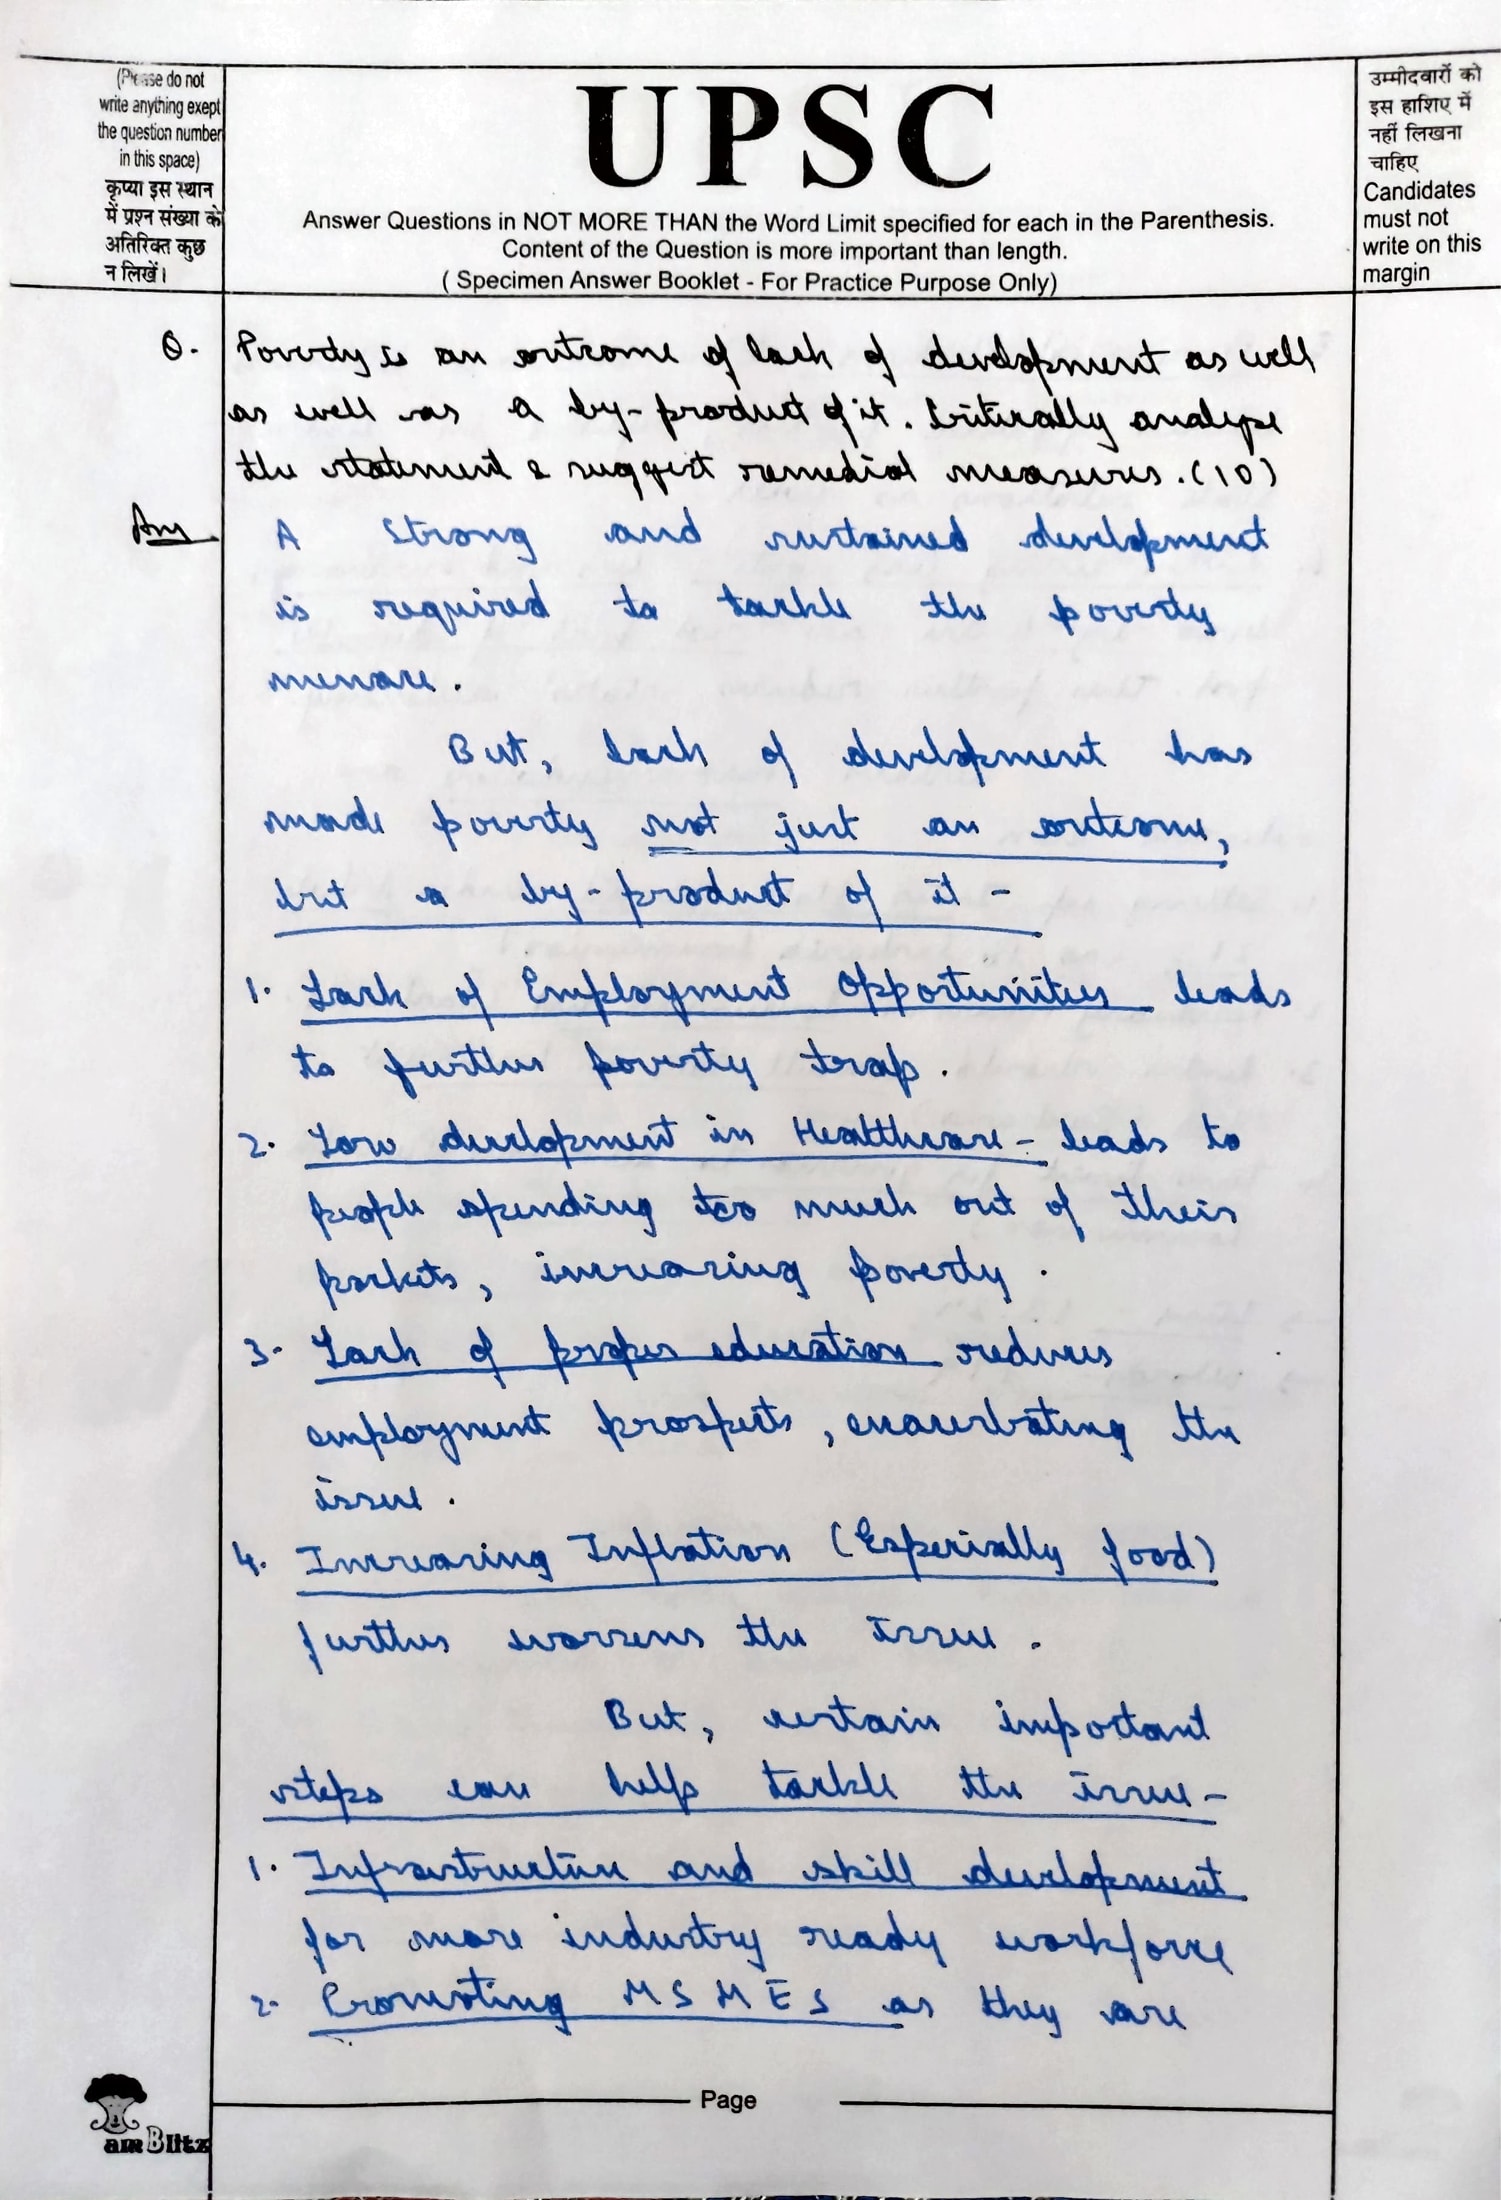 (Please do not
write anything exept
the question number
in this space)
कृप्या इस स्थान
में प्रश्न संख्या के
अतिरिक्त कुछ
न लिखें।
UPSC
Answer Questions in NOT MORE THAN the Word Limit specified for each in the Parenthesis.
Content of the Question is more important than length.
( Specimen Answer Booklet - For Practice Purpose Only)
उम्मीदवारों को
इस हाशिए में
नहीं लिखना
चाहिए
Candidates
must not
write on this
margin
Q. Poverty is an outcome of lack of development as well
as well as a by-product of it. Critically analyse
the statement & suggest remedial measures. (10)
Ans A strong and sustained development
is required to tackle the poverty
menace.
But, lack of development has
made poverty not just an outcome,
but a by-product of it -
1. Lack of Employment Opportunities leads
to further poverty trap.
2. Low development in Healthcare - leads to
people spending too much out of their
pockets, increasing poverty.
3. Lack of proper education reduces
employment prospects, exacerbating the
issue.
4. Increasing Inflation (Especially food)
further worsens the issue.
But, certain important
steps can help tackle the issue -
1. Infrastructure and skill development
for more industry ready workforce
2. Promoting MSMES as they are
Page
amBlitz